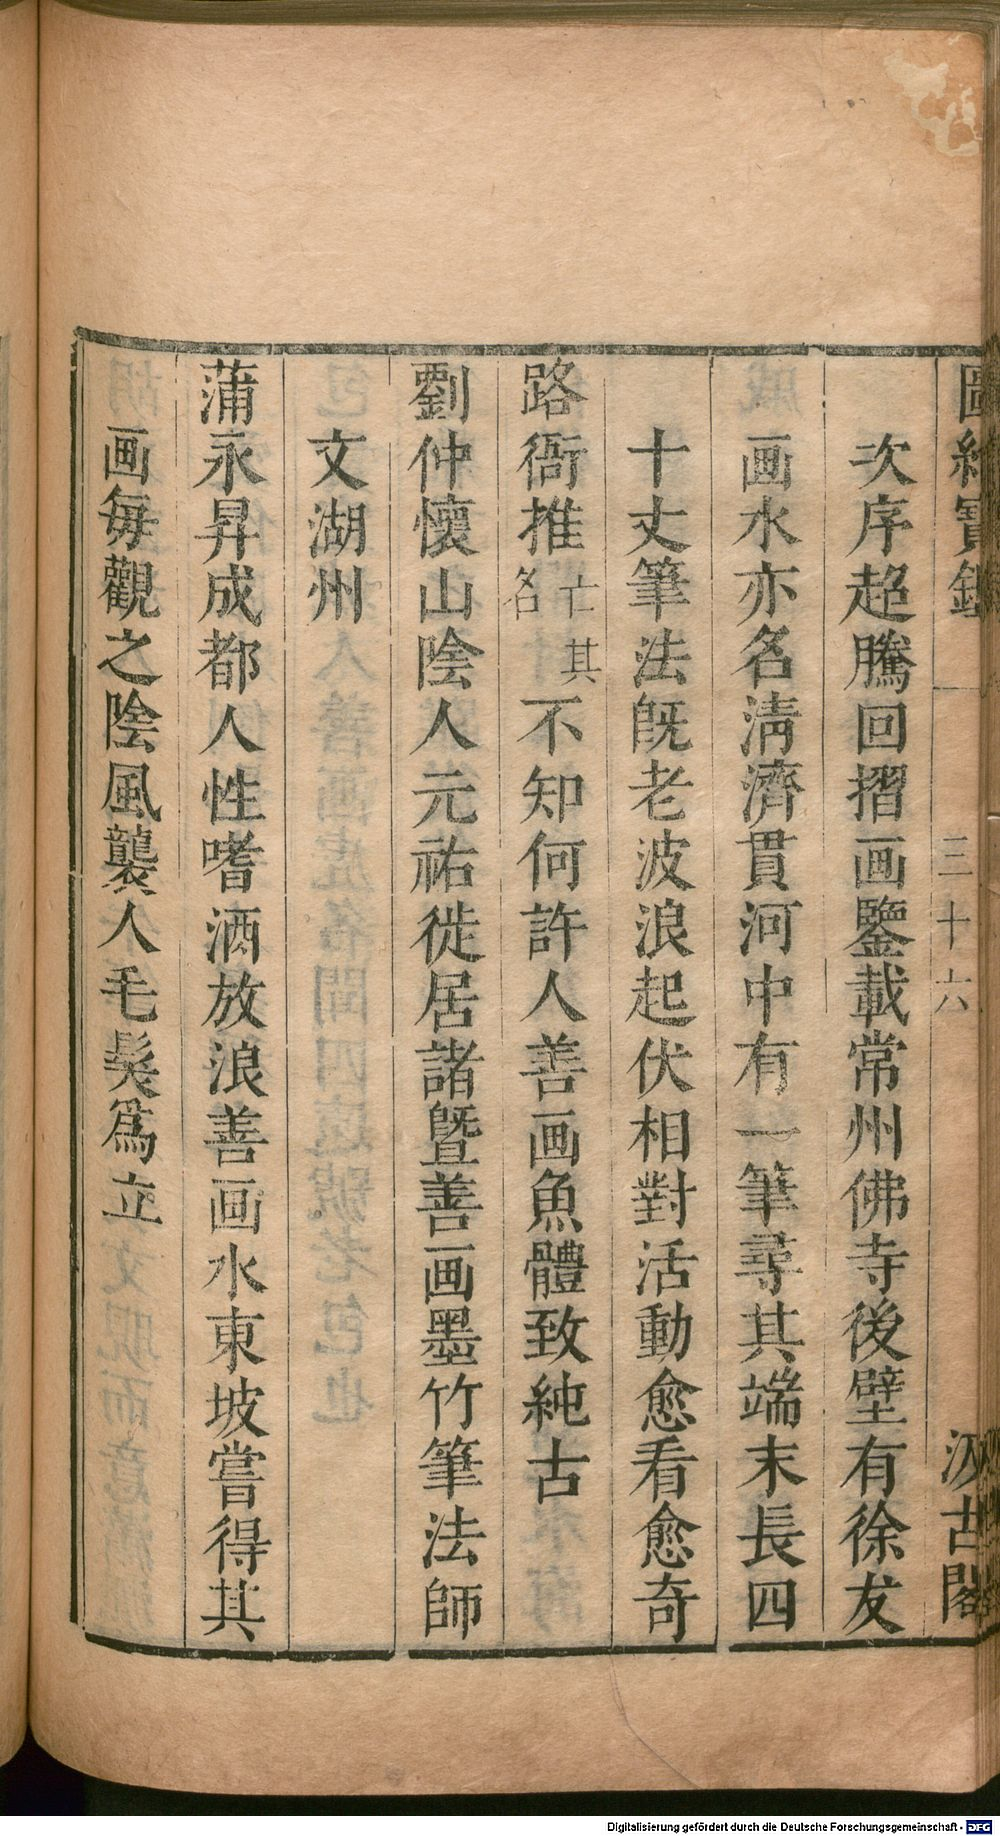 圖繪寶鑑 三十六 汲古閣
次序超騰回摺画鑒載常州佛寺後壁有徐友
画水亦名淸濟貫河中有一筆尋其端末長四
十丈筆法旣老波浪起伏相對活動愈看愈奇
路衙推亡其名不知何許人善画魚體致純古
劉仲懷山陰人元祐徙居諸曁善画墨竹筆法師
文湖州
蒲永昇成都人性嗜酒放浪善画水東坡嘗得其
画每觀之陰風襲人毛髮爲立
Digitalisierung gefördert durch die Deutsche Forschungsgemeinschaft - DFG